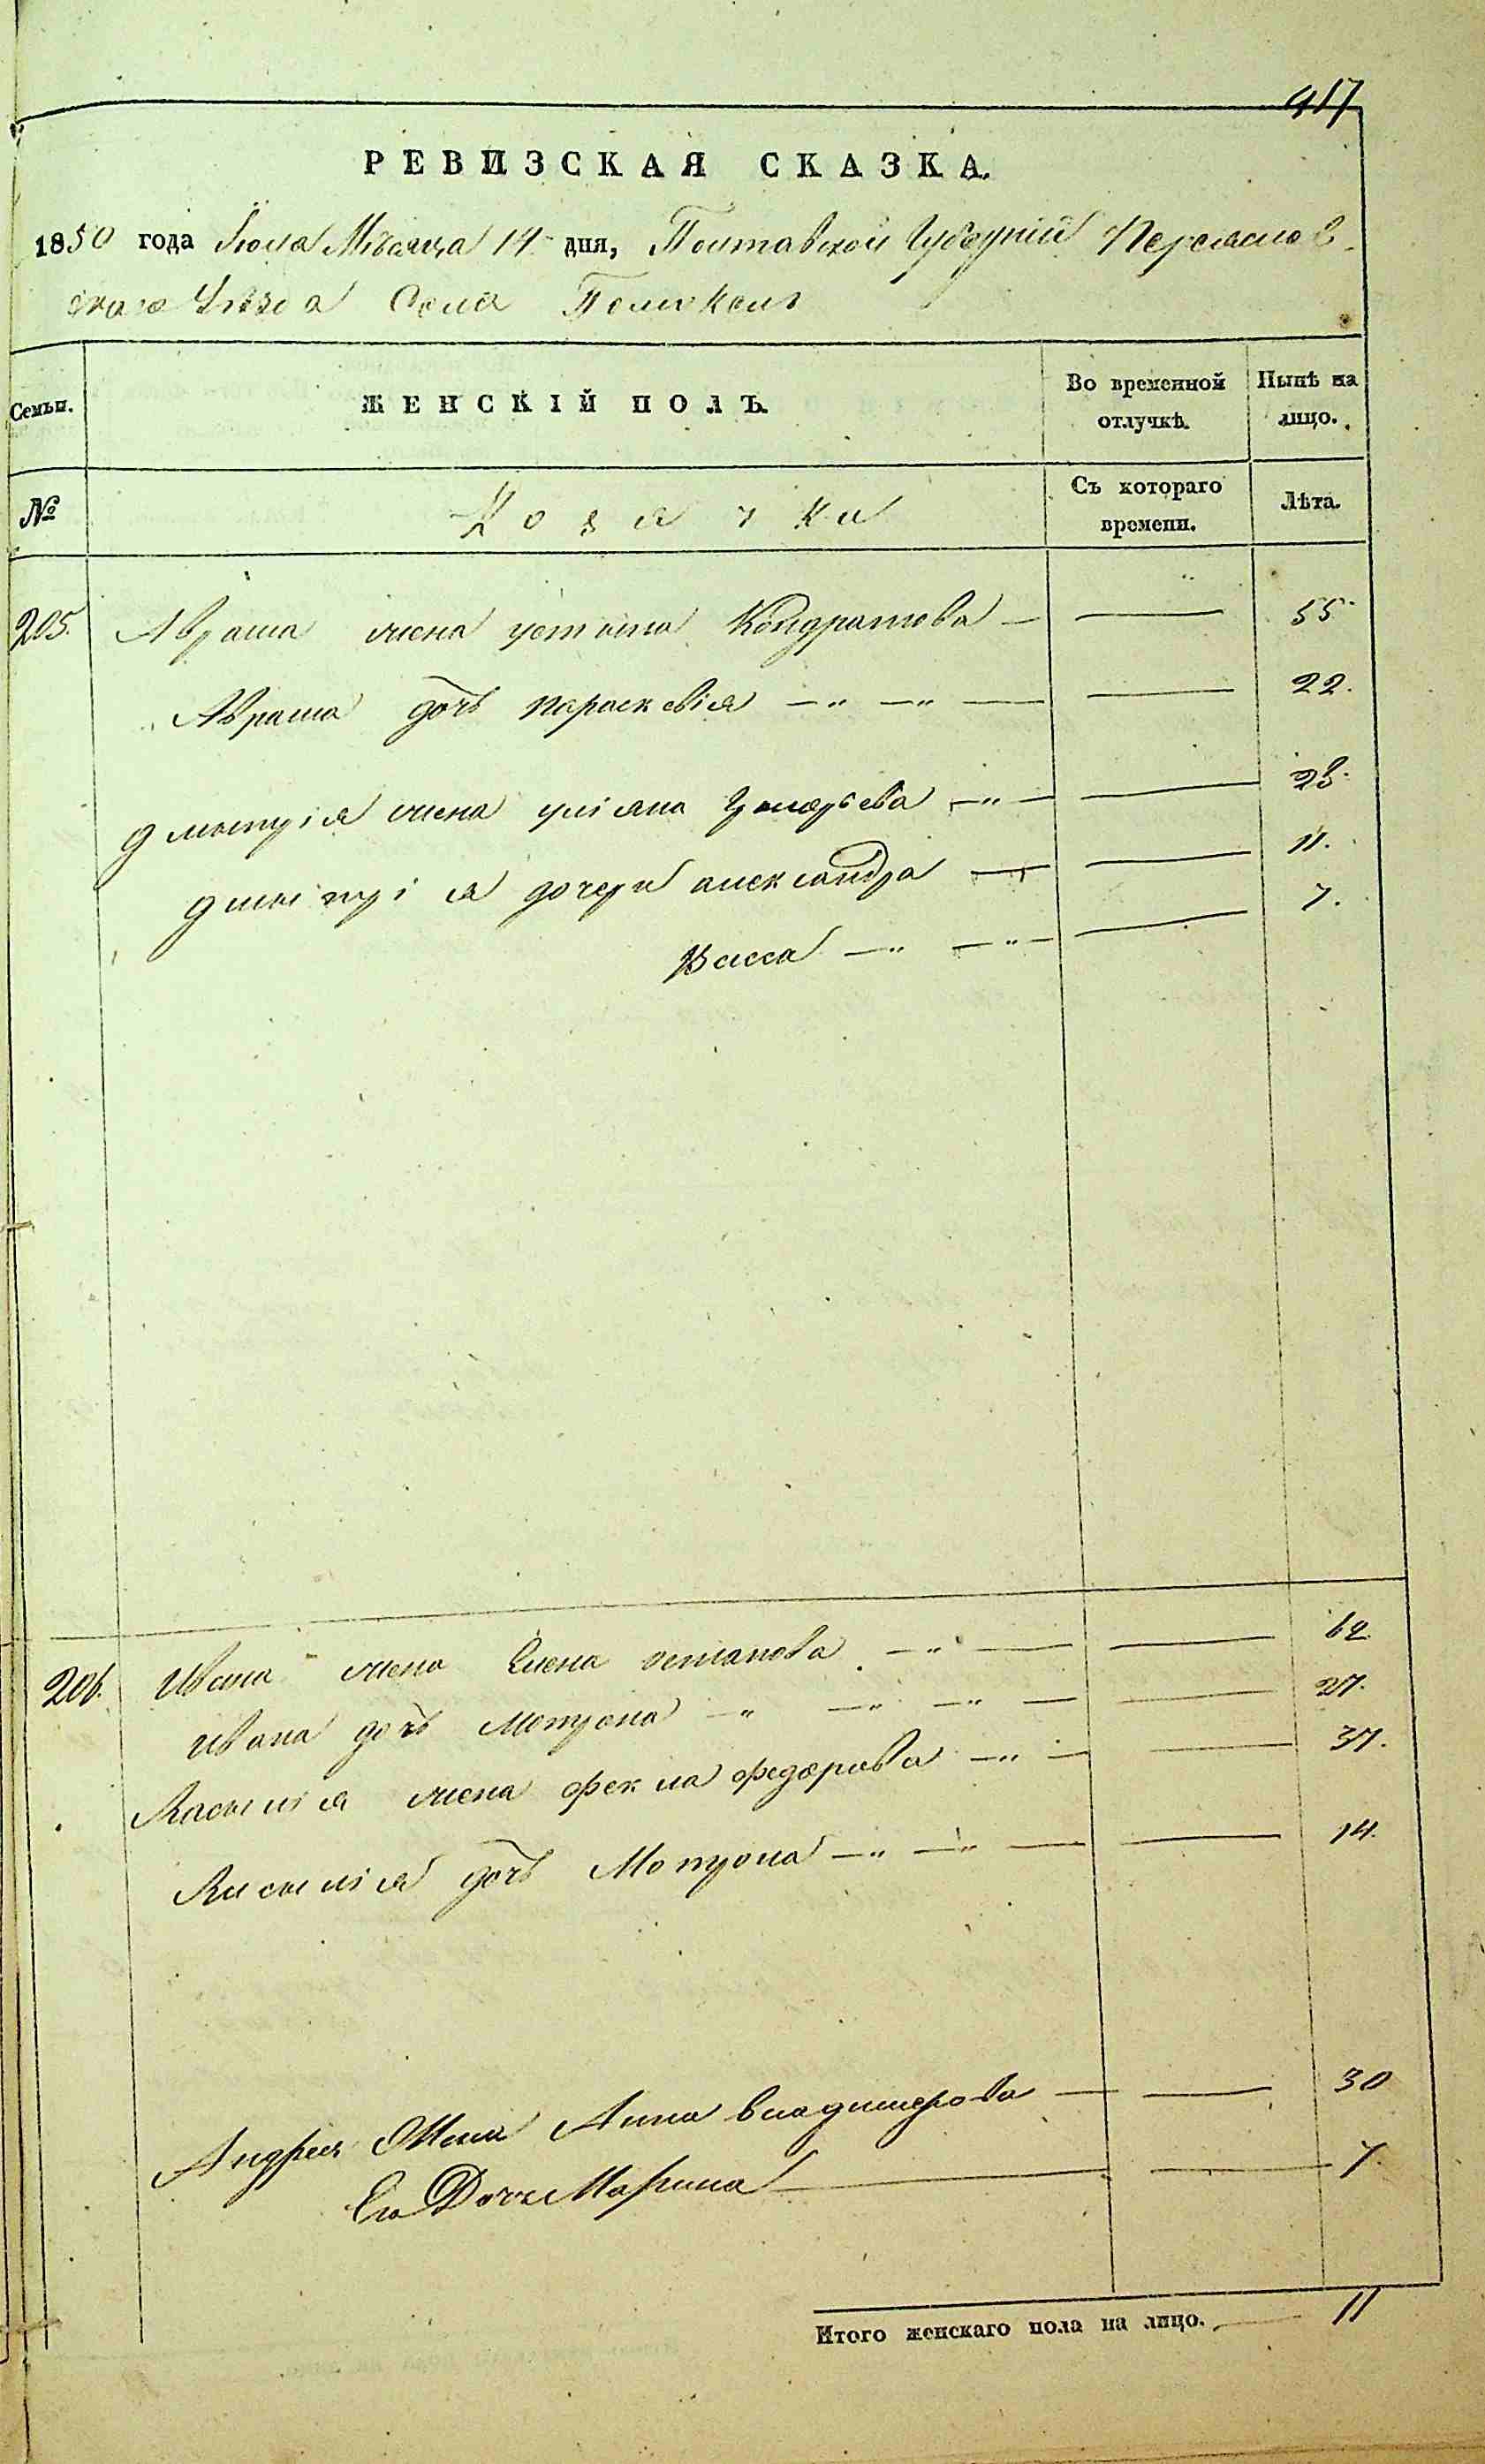 417
РЕВИЗСКАЯ СКАЗКА.
1850 года Іюля Мѣсяца 14 дня, Полтавской Губерніи Переяслов-
скаго Уѣзда Села Помокель
Семьи. ЖЕНСКІЙ ПОЛЪ. Во временной отлучкѣ. Нынѣ на лицо.
№ Козачки Съ котораго времени. Лѣта.
205. Аврама жена Устина Кондратова — — 55
Аврама дочь Параскевія —„ —„ — — 22.
Дмытрія жена Уліяна —„— —
Дмытрія дочери Александра — — 11.
Васса —„ —„— — 7.
206. Ивана жена Елена остапова —„ — — 62
Ивана дочь Мотрона „ —„ —„ — — 27.
Васыля жена Фекла Федорова —„ — — 37.
Васыля дочь Мотрона —„ —„ — — 14.
Андрея Жена Анна Владимерова — — 30
Его Дочь Марина — — 7.
Итого женскаго пола на лицо. — 11